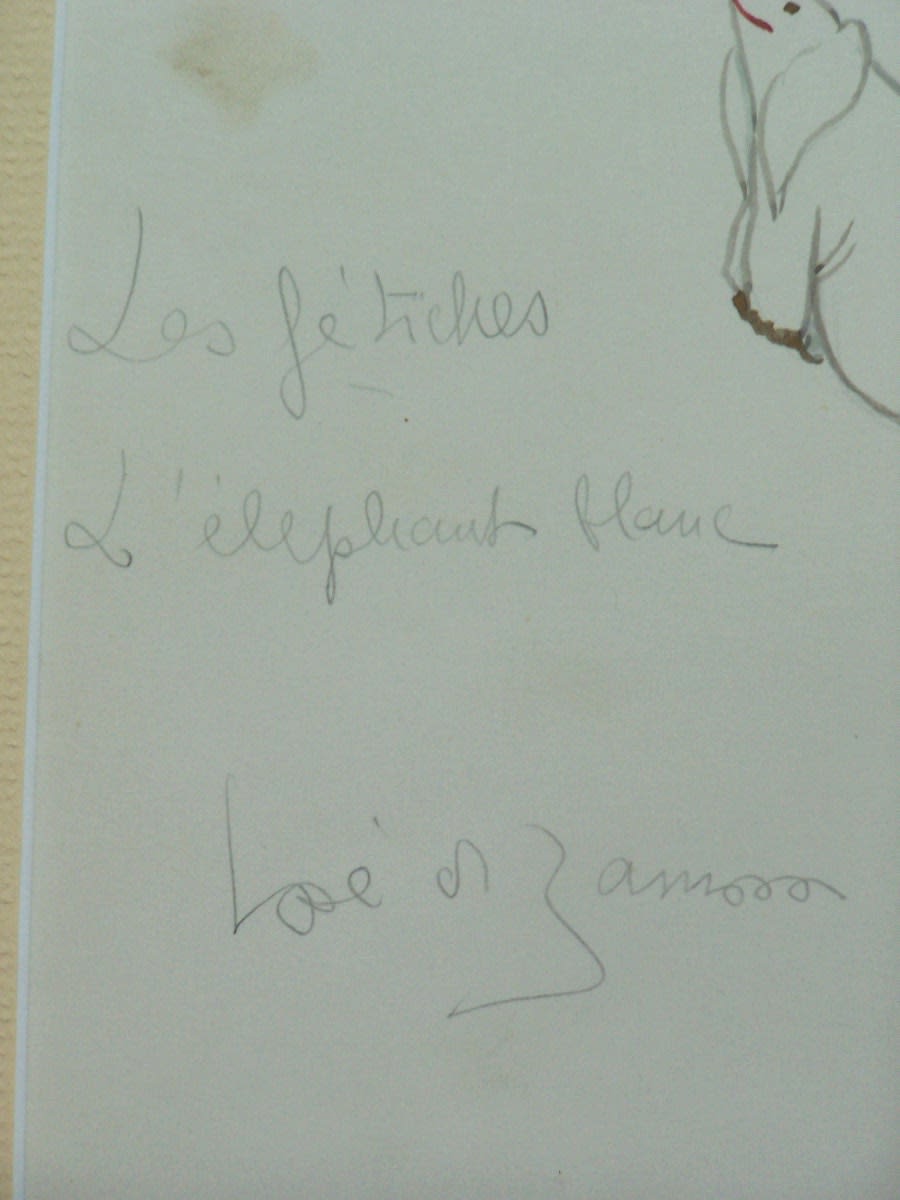 Les fétiches
L'éléphant blanc
José de Zamora